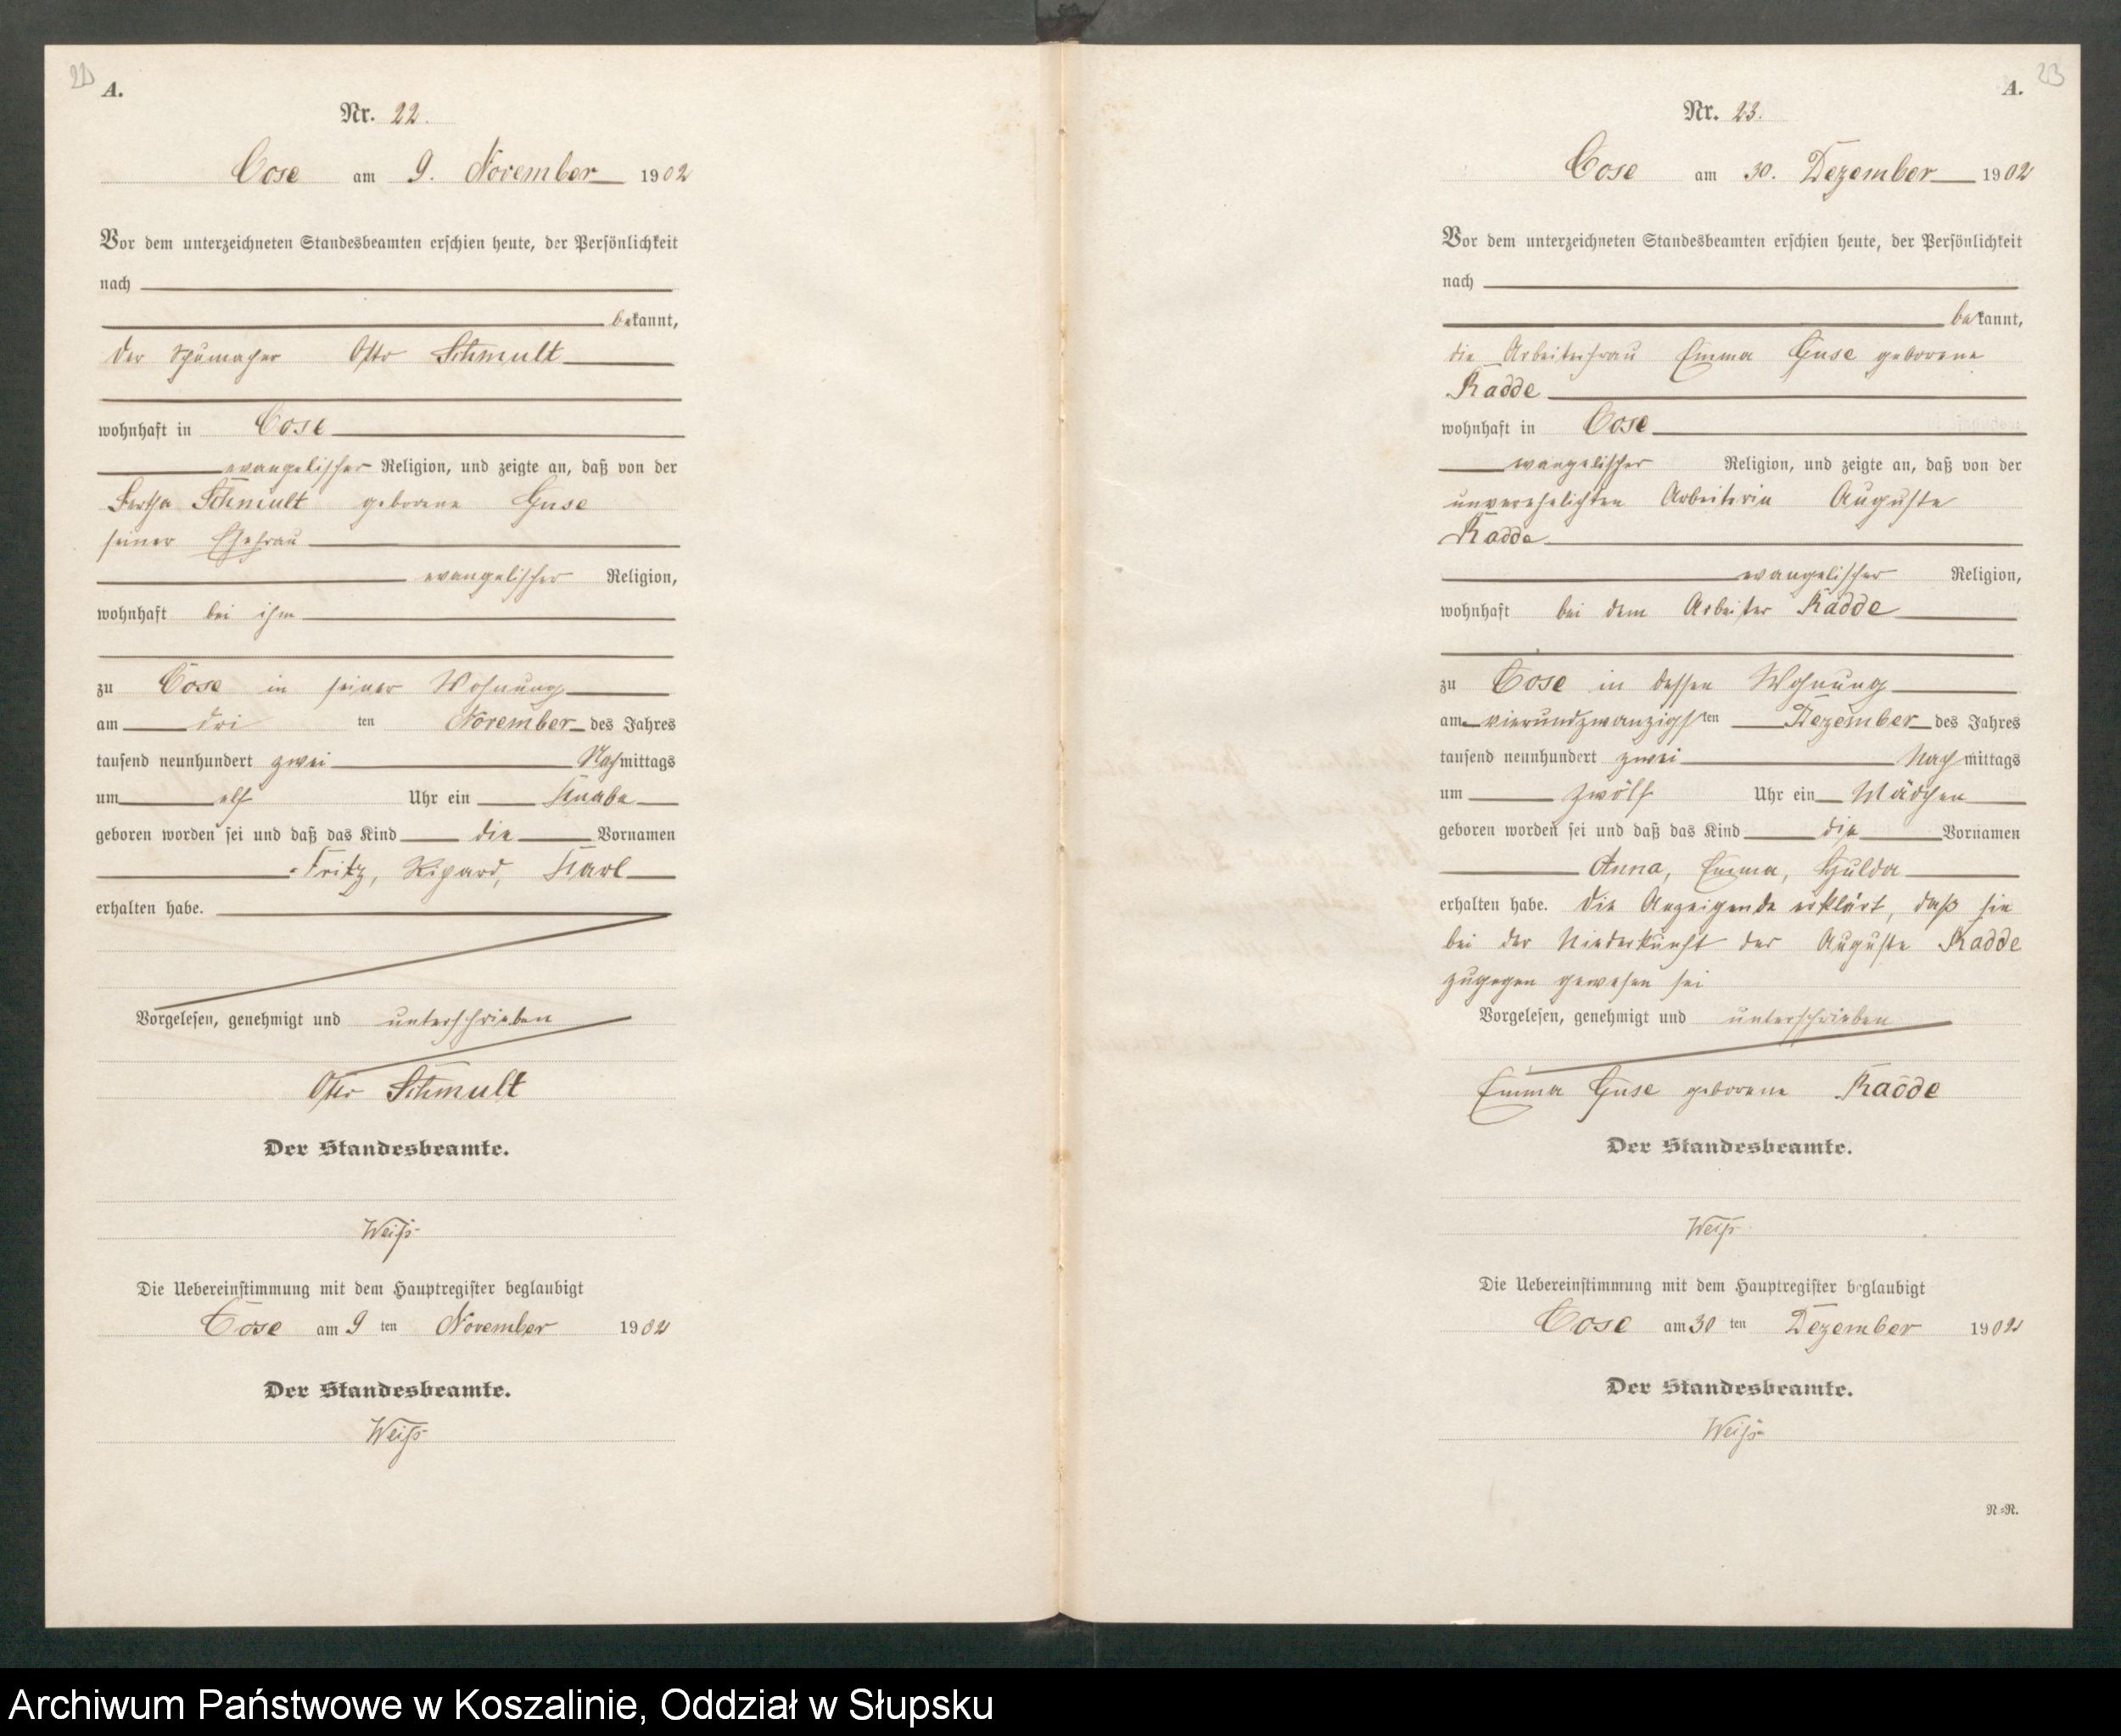 22
A.
Nr. 22.
Cose am 9. November 1902
Vor dem unterzeichneten Standesbeamten erschien heute, der Persönlichkeit
nach
bekannt,
der Schumacher Otto Schmult
wohnhaft in Cose
evangelischer Religion, und zeigte an, daß von der
Bertha Schmult geborene Guse
seiner Ehefrau
evangelischer Religion,
wohnhaft bei ihm
zu Cose in seiner Wohnung
am dri ten November des Jahres
tausend neunhundert zwei Nachmittags
um elf Uhr ein Knabe
geboren worden sei und daß das Kind die Vornamen
Fritz, Richard, Karl
erhalten habe.
Vorgelesen, genehmigt und unterschrieben
Otto Schmult
Der Standesbeamte.
Weiß
Die Uebereinstimmung mit dem Hauptregister beglaubigt
Cose am 9 ten November 1902
Der Standesbeamte.
Weiß
23
A.
Nr. 23.
Cose am 30. Dezember 1902
Vor dem unterzeichneten Standesbeamten erschien heute, der Persönlichkeit
nach
bekannt,
die Arbeiterfrau Emma Guse geborene
Radde
wohnhaft in Cose
evangelischer Religion, und zeigte an, daß von der
unverehelichten Arbeiterin Auguste
Radde
evangelischer Religion,
wohnhaft bei dem Arbeiter Radde
zu Cose in dessen Wohnung
am vierundzwanzigsten Dezember des Jahres
tausend neunhundert zwei Nachmittags
um zwölf Uhr ein Mädchen
geboren worden sei und daß das Kind die Vornamen
Anna, Emma, Hulda
erhalten habe. Die Anzeigende erklärt, daß sie
bei der Niederkunft der Auguste Radde
zugegen gewesen sei
Vorgelesen, genehmigt und unterschrieben
Emma Guse geborene Radde
Der Standesbeamte.
Weiß
Die Uebereinstimmung mit dem Hauptregister beglaubigt
Cose am 30 ten Dezember 1902
Der Standesbeamte.
Weiß
N=R.
Archiwum Państwowe w Koszalinie, Oddział w Słupsku